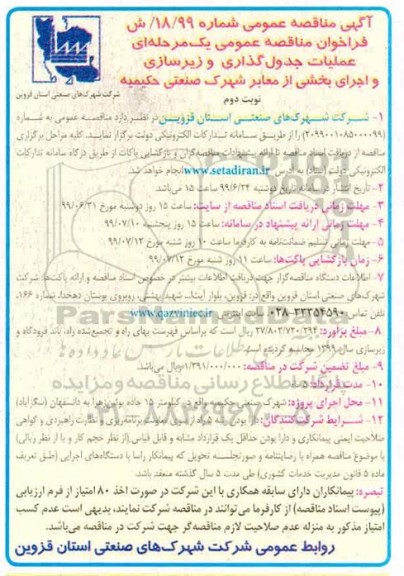 آگهی مناقصه عمومی شماره ۱۸/۹۹/ ش
فراخوان مناقصه عمومی یک‌مرحله‌ای
عملیات جدول‌گذاری و زیرسازی
و اجرای بخشی از معابر شهرک صنعتی حکیمیه
شرکت شهرک‌های صنعتی استان قزوین
نوبت دوم
۱- شرکت شهرک‌های صنعتی استان قزوین در نظر دارد مناقصه عمومی به شماره
(۲۰۹۹۰۰۱۰۸۵۰۰۰۰۹۹) را از طریق سامانه تدارکات الکترونیکی دولت برگزار نمایید. کلیه مراحل برگزاری
مناقصه از دریافت اسناد مناقصه تا ارائه پیشنهادات مناقصه‌گران و بازگشایی پاکات از طریق درگاه سامانه تدارکات
الکترونیکی دولت (ستاد) به آدرس www.setadiran.ir انجام خواهد شد.
۲- تاریخ انتشار در سامانه تاریخ دوشنبه ۹۹/۶/۲۴ ساعت ۱۵ می‌باشد.
۳- مهلت زمانی دریافت اسناد مناقصه از سایت: ساعت ۱۵ روز دوشنبه مورخ ۹۹/۰۶/۳۱
۴- مهلت زمانی ارائه پیشنهاد در سامانه: ساعت ۱۵ روز پنجشنبه ۹۹/۰۷/۱۰
۵- مهلت زمانی تسلیم ضمانت‌نامه به کارفرما ساعت ۱۰ روز شنبه مورخ ۹۹/۰۷/۱۲
۶- زمان بازگشایی پاکت‌ها: ساعت ۱۱ روز شنبه مورخ ۹۹/۰۷/۱۲
۷- اطلاعات دستگاه مناقصه‌گزار جهت دریافت اطلاعات بیشتر در خصوص اسناد مناقصه و ارائه پاکت‌ها: شرکت
شهرک‌های صنعتی استان قزوین واقع در: قزوین، بلوار آیت‌ا... شهید روبروی بوستان دهخدا، شماره ۱۶۶
تلفن تماس ۳۳۳۵۴۵۹۰-۰۲۸ سایت www.qazviniec.ir
۸- مبلغ برآورد: ۲۷/۸۰۲/۷۳۰/۲۹۴ ریال است که براساس فهرست بهای راه و تجمیع‌شده راه، باند فرودگاه و
زیرسازی سال ۱۳۹۹ محاسبه گردیده است.
۹- مبلغ تضمین شرکت در مناقصه: ۱/۳۹۱/۰۰۰/۰۰۰ ریال می‌باشد.
۱۰- مدت قرارداد
۱۱- محل اجرای پروژه: شهرک صنعتی حکیمیه واقع در کیلومتر ۱۵ جاده بوئین‌زهرا به دانسفهان (سگزآباد)
۱۲- شرایط شرکت‌کنندگان: دارا بودن رتبه راه از سوی سازمان برنامه‌ریزی و نظارت راهبردی و گواهی
صلاحیت ایمنی پیمانکاری و دارا بودن حداقل یک قرارداد مشابه و قابل قیاس (از نظر حجم کار و یا از نظر ریالی)
با موضوع مناقصه همراه با رضایتنامه و صورتجلسه تحویل که پیمانکار راسا با دستگاه‌های اجرایی (طبق تعریف
ماده ۵ قانون مدیریت خدمات کشوری) طی مدت ۵ سال گذشته منعقد باشد.
تبصره: پیمانکاران دارای سابقه همکاری با این شرکت در صورت اخذ ۸۰ امتیاز از فرم ارزیابی
(پیوست اسناد مناقصه) از کارفرما می‌توانند در مناقصه شرکت نمایند، بدیهی است عدم کسب
امتیاز مذکور به منزله عدم صلاحیت لازم مناقصه‌گر جهت شرکت در مناقصه می‌باشد.
روابط عمومی شرکت شهرک‌های صنعتی استان قزوین